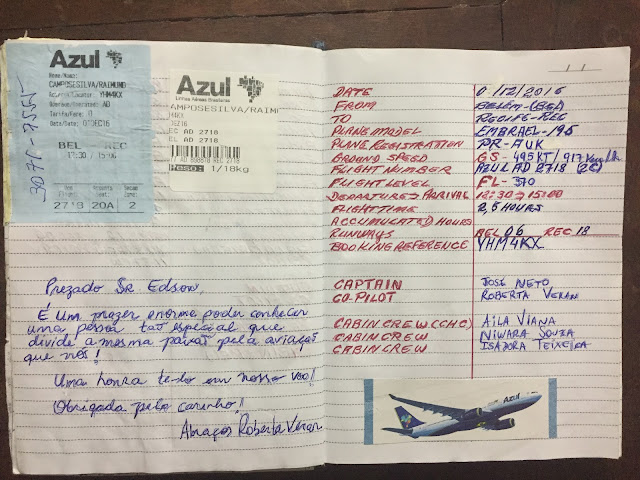 Azul
Nome/Name:
CAMPOSESILVA/RAIMUND
YHM4KX
AD
Data/Date: 07DEC16
BEL REC
12:30 / 15:06
2718 20A 2
Azul
Linhas Aéreas Brasileiras
AMPOSESILVA/RAIM
M4KX
DEC16
EC AD 2718
Peso: 1/18kg
Prezado Sr Edson,
É um prazer enorme poder conhecer
uma pessoa tão especial que
divide a mesma paixão pela aviação
que nós!
Uma honra te-lo em nosso voo!
Obrigada pelo carinho!
Abraços Roberta Veran
DATE /12/2016
FROM BELÉM-(BEL)
TO RECIFE-REC
PLANE MODEL EMBRAEL-195
PLANE REGISTRATION PR-AUK
GROUND SPEED GS-495KT/917
FLIGHT NUMBER AZUL AD 2718
FLIGHT LEVEL FL-370
DEPARTURE> ARRIVAL 12:30 > 15:00
FLIGHT TIME 2,5 HOURS
ACCUMULATED HOURS
RUNWAYS BEL 06 REC 18
BOOKING REFERENCE YHM4KX
CAPTAIN JOSÉ NETO
CO-PILOT ROBERTA VERAN
CABIN CREW (CHC) AILA VIANA
CABIN CREW NIWARA SOUZA
CABIN CREW ISADORA TEIXEIRA
Azul